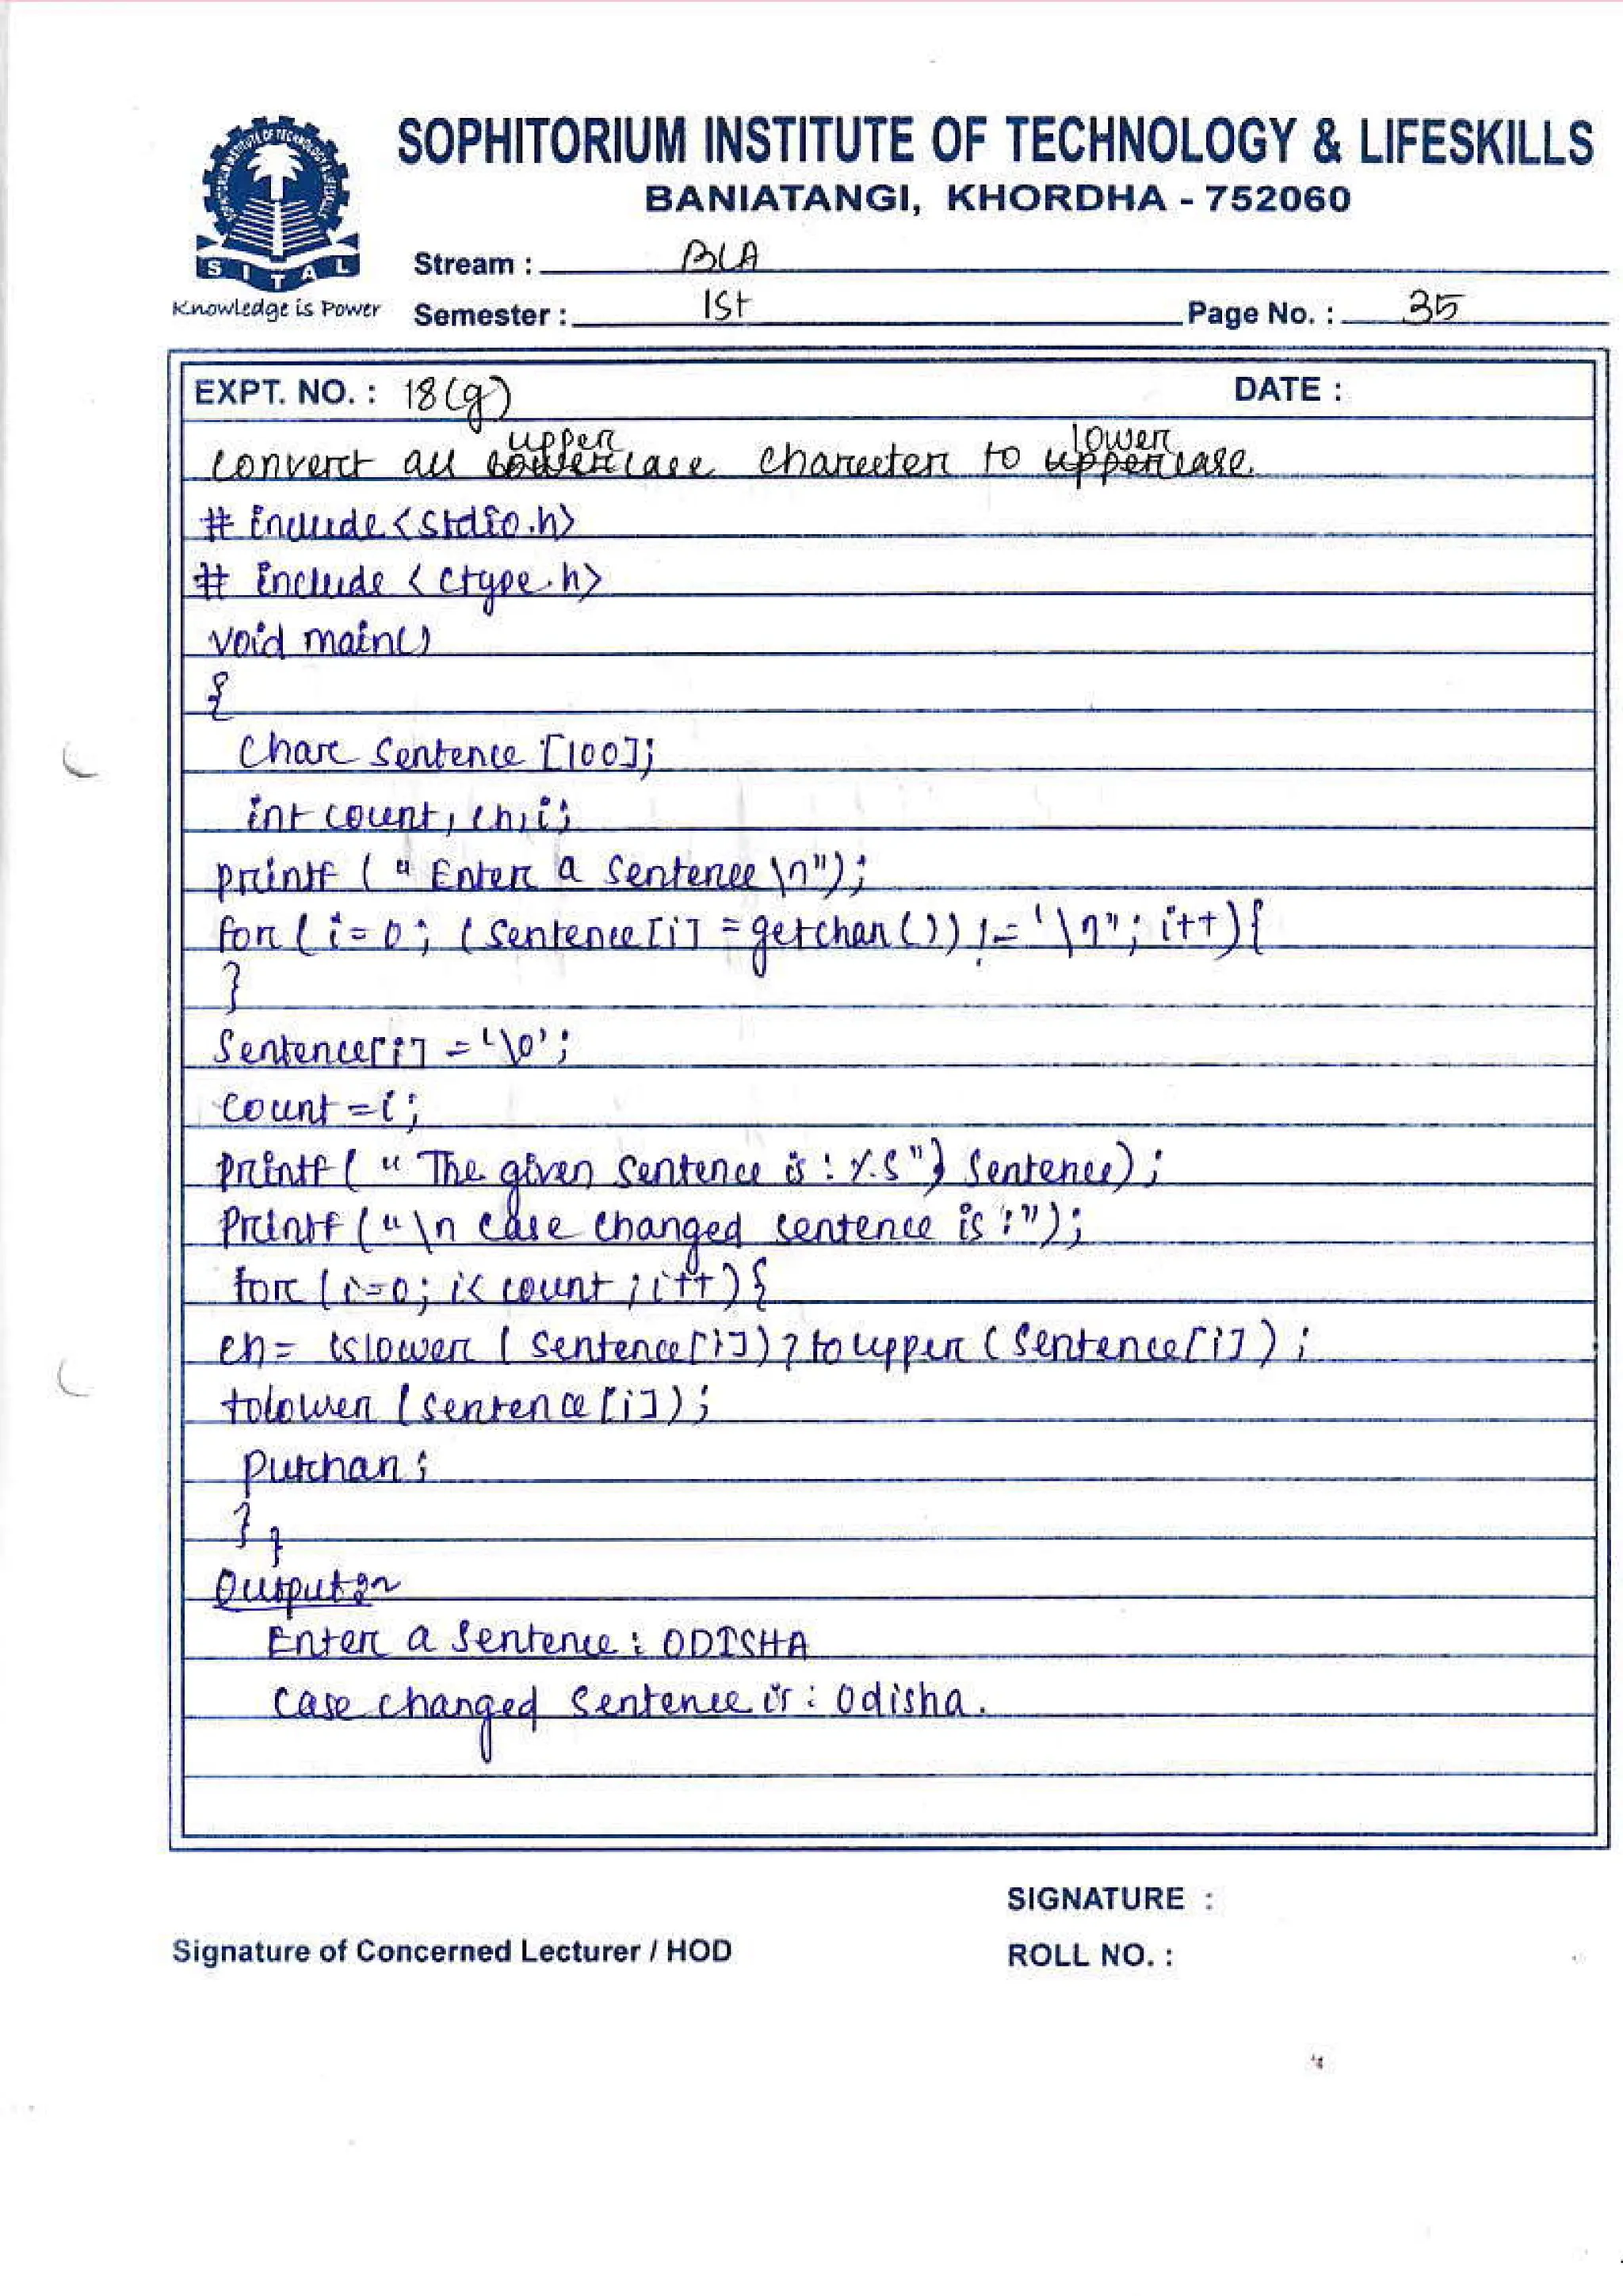 SOPHITORIUM INSTITUTE OF TECHNOLOGY & LIFESKILLS
BANIATANGI, KHORDHA - 752060
SITAL
Knowledge is Power
Stream : BCA
Semester : 1st Page No. : 35
EXPT. NO. : 18(g) DATE :
convert all uppercase character to lowercase.
# include <stdio.h>
# include < ctype.h>
void main()
{
Char Sentence [100];
int count, ch, i;
printf ( " Enter a Sentence \n");
for ( i = 0 ; ( Sentence[i] = getchar ()) != '\n" ; i++){
}
Sentence[i] = '\0';
Count = i ;
printf ( " The given Sentence is : %.s"} Sentence) ;
Printf ( "\n case changed sentence is :");
for (i=0; i< count ; i++) {
ch = islower ( Sentence[i]) ? toupper ( Sentence[i]) ;
tolower ( Sentence [i]);
Putchar ;
} }
Output :~
Enter a Sentence : ODISHA
Case changed Sentence is : Odisha.
SIGNATURE :
Signature of Concerned Lecturer / HOD
ROLL NO. :